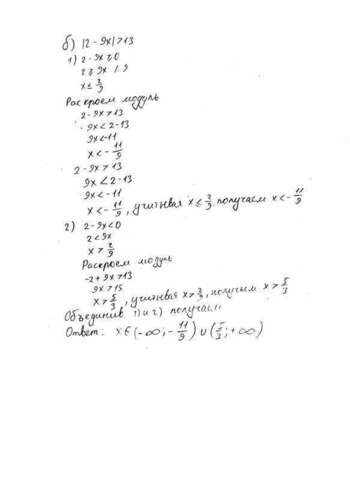 б) |2 - 9x| > 13
1) 2 - 9x ≥ 0
2 ≥ 9x | : 9
x ≤ 2/9
Раскроем модуль
2 - 9x > 13
9x < 2 - 13
9x < -11
x < - 11/9
2 - 9x > 13
9x < 2 - 13
9x < -11
x < - 11/9, учитывая x ≤ 2/9 получаем x < - 11/9
2) 2 - 9x < 0
2 < 9x
x > 2/9
Раскроем модуль
-2 + 9x > 13
9x > 15
x > 5/3, учитывая x > 2/9, получим x > 5/3
Объединив 1) и 2) получаем
Ответ: x ∈ (-∞; - 11/9) ∪ (5/3; +∞)